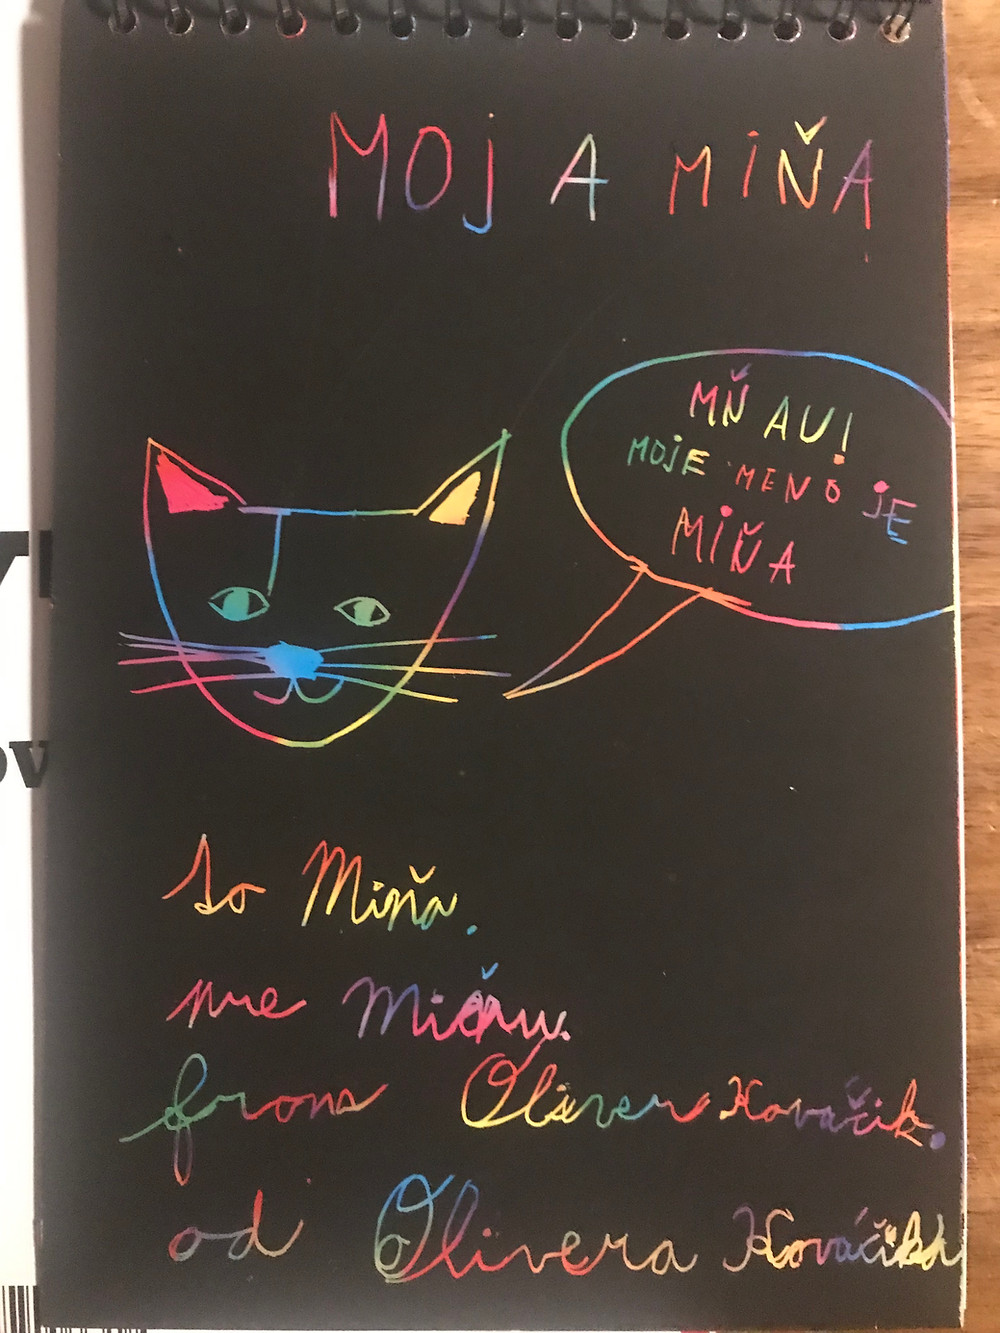 MOJA MIŇA
MŇAU!
MOJE MENO JE
MIŇA
to Miňa.
pre Miňu.
from Oliver Kovačik.
od Olivera Kováčika